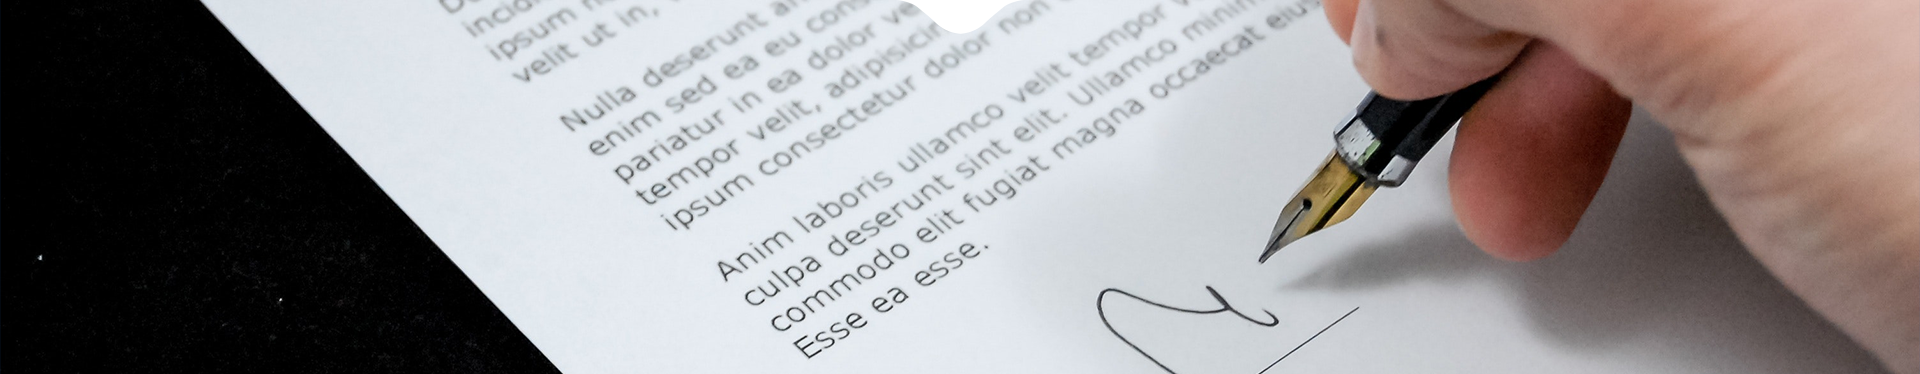 velit ut in,
Nulla deserunt
enim sed ea eu
pariatur in ea dolor
tempor velit,
ipsum consectetur dolor non
Anim laboris ullamco velit tempor
culpa deserunt sint elit. Ullamco
commodo elit fugiat magna occaecat
Esse ea esse.